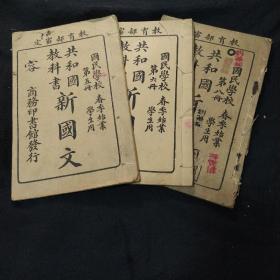 教育部審定
國民學校 春季始業
第五冊 學生用
共和國
教科書
新國文
商務印書館發行
教育部審定
國民學校 春季始業
第六冊 學生用
共和國
教科書
新
國民學校 春季始業
第八冊 學生用
共和國
教科書